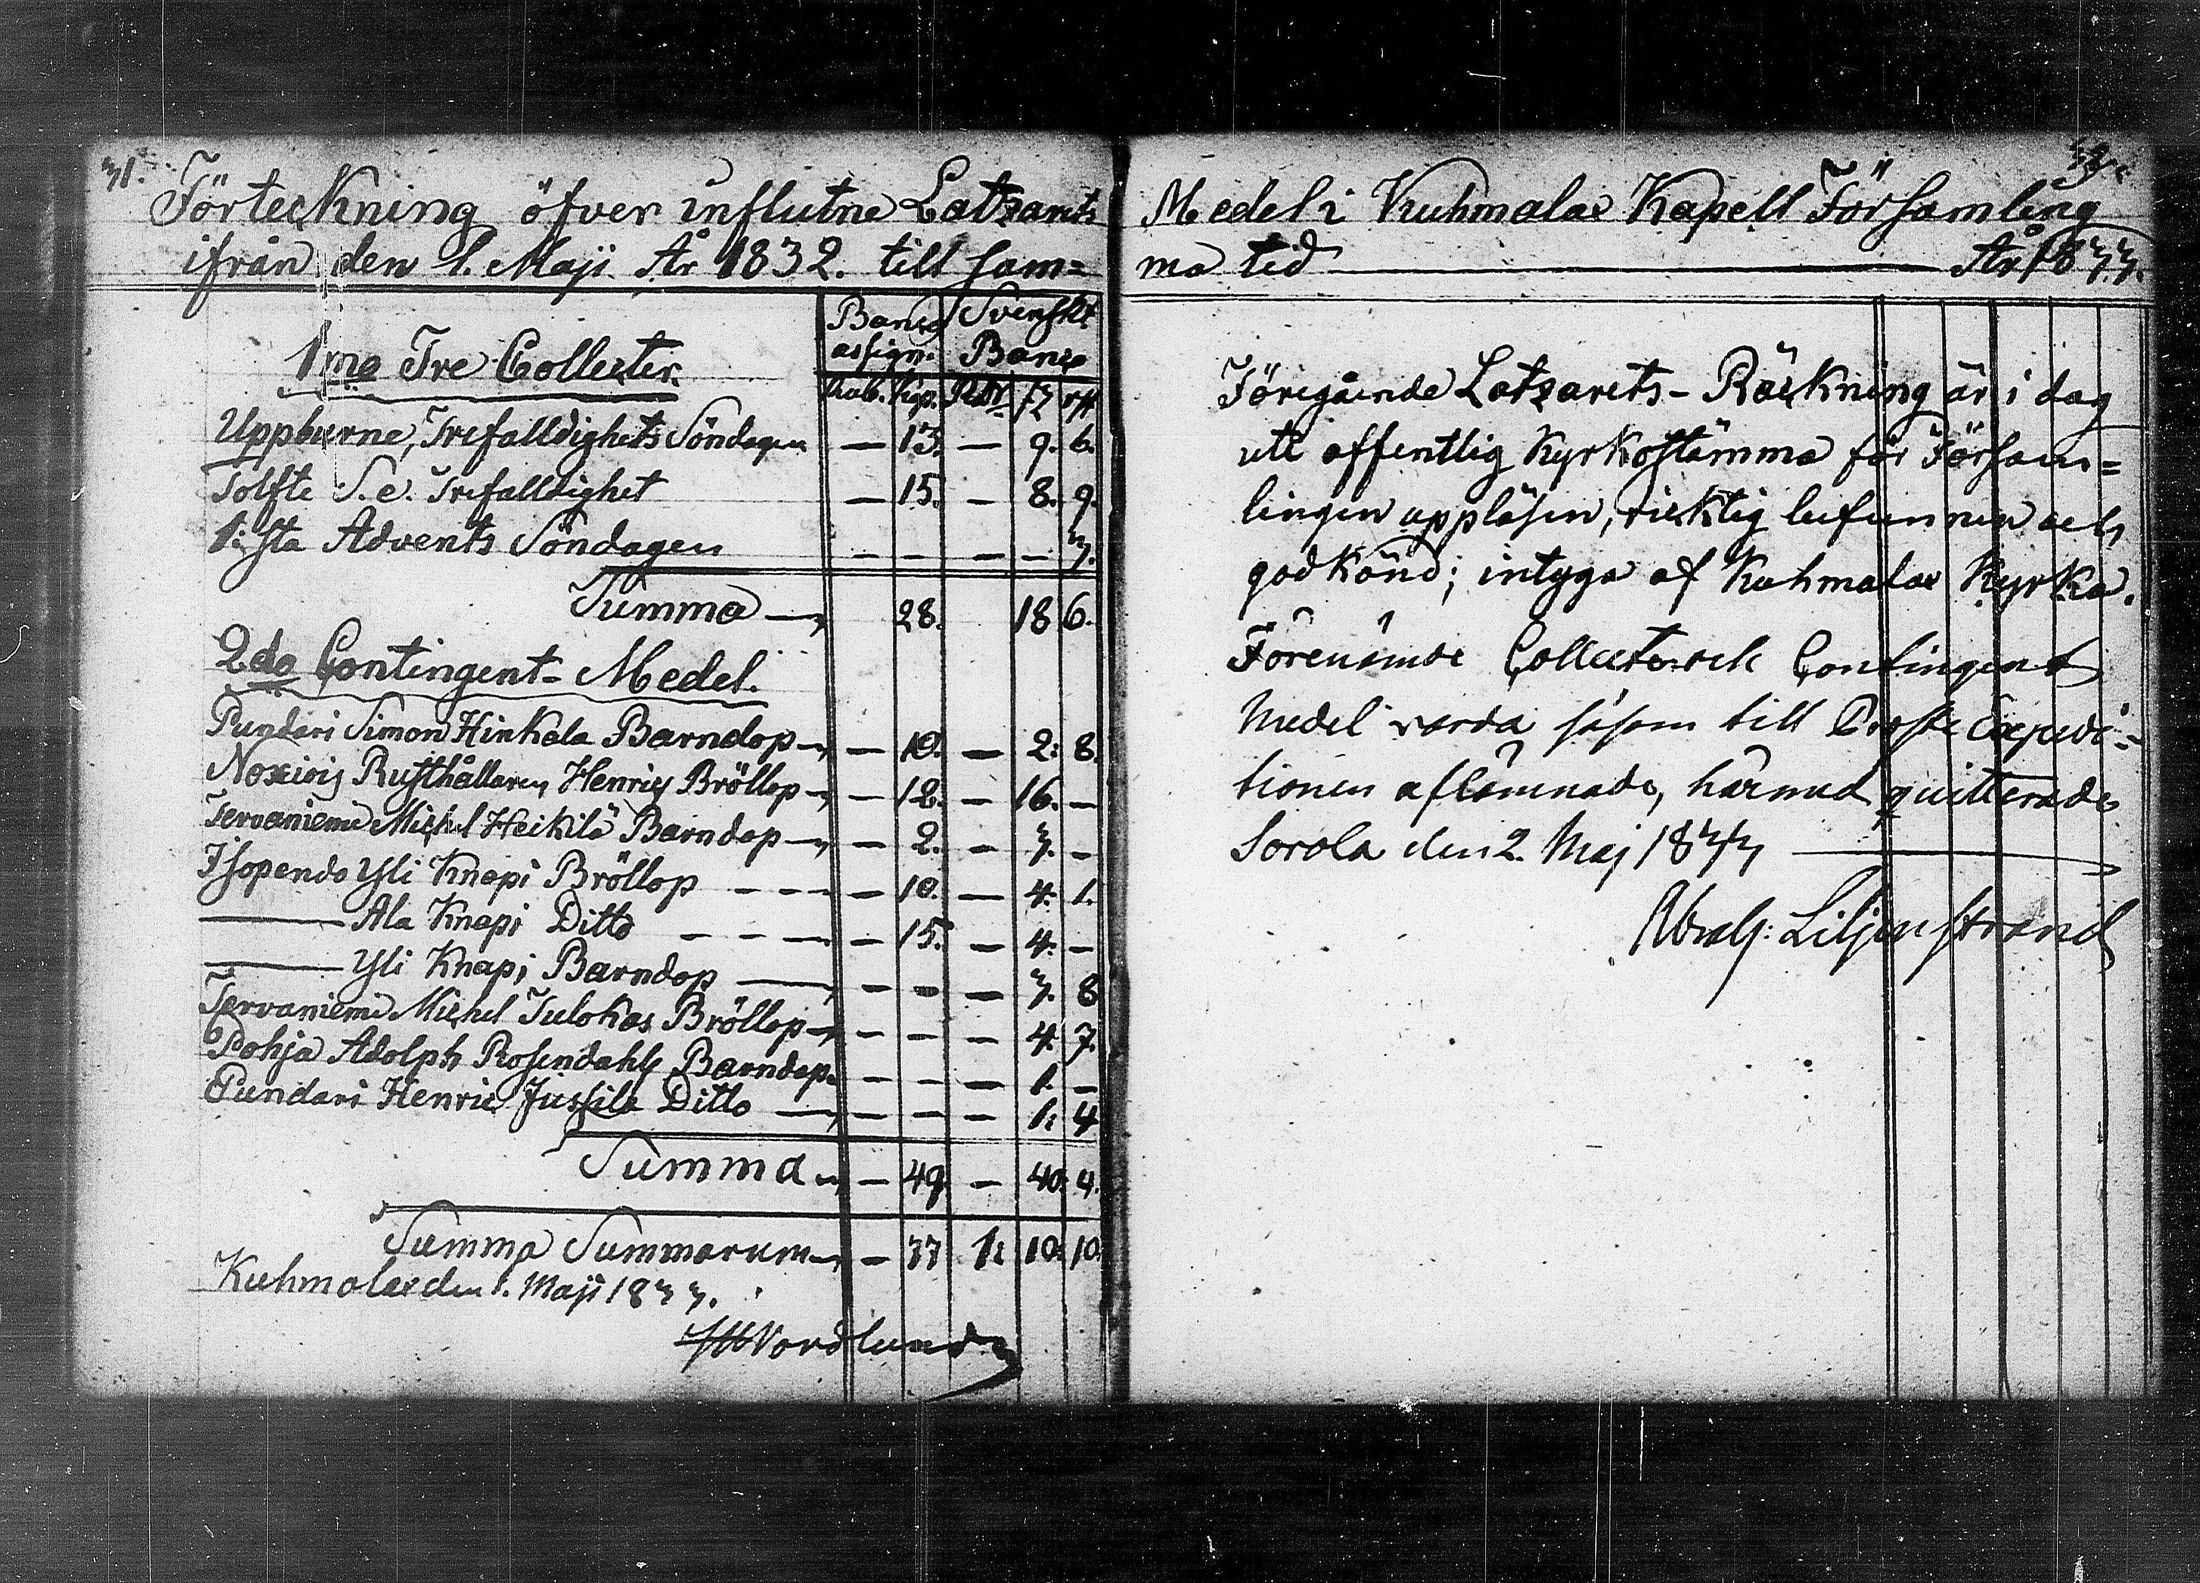 31.
Förteckning öfver influtne Latzarets
ifrån den 1. Maji År 1832. till sam=
Banco Svenskt
assign. Banco
Rub. Kop. Rdr ß rst
1mo Tre Collecter.
Uppburne, Trefalldighets Söndagen — 13. — 9. 6.
Tolfte S. e. Trefalldighet — 15. — 8. 9.
1:sta Advents Söndagen — — — — 3.
Summa — 28. 18 6.
2do Contingent-Medel.
Pundari Simon Hinkala Barndop — — 10. — 2: 8.
Rusthållaren Henrics Bröllop — — 12. — 16. —
Tervaniemi Michel Heikilä Barndop — — 2. — 3. —
Isopendo Yli Knapi Bröllop — — — — 10. — 4. 1.
— Ala Knapi Ditto — — — — 15. — 4. —
— Yli Knapi Barndop — — — — 3. 8
Tervaniemi Michel Tulokas Bröllop — — — — 4. 7.
Pohja Adolph Rosendahls Barndop — — — 1. —
Pundari Henric Jussila Ditto — — — — 1: 4
Summa — 49. — 40. 4.
Summa Summarum — 77 1: 10. 10.
Kuhmalax den 1. Maji 1833.
Nordlund
Medel i Kuhmalax Kapell Församling
ma tid — År 1833.
Föregående Latzarets-Räkning är i dag
uti offentlig Kyrkostämma för Försam=
lingen uppläsen, ricktig befunnen och
godkönd; intyga af Kuhmalax Kyrka.
Förenämde Collect och Contingent
Medel varda såsom till Prosts Expedi=
tionen aflämnade, härmed quitterade
Sorola den 2. Maj 1833 —
Abrah: Liljenstrand